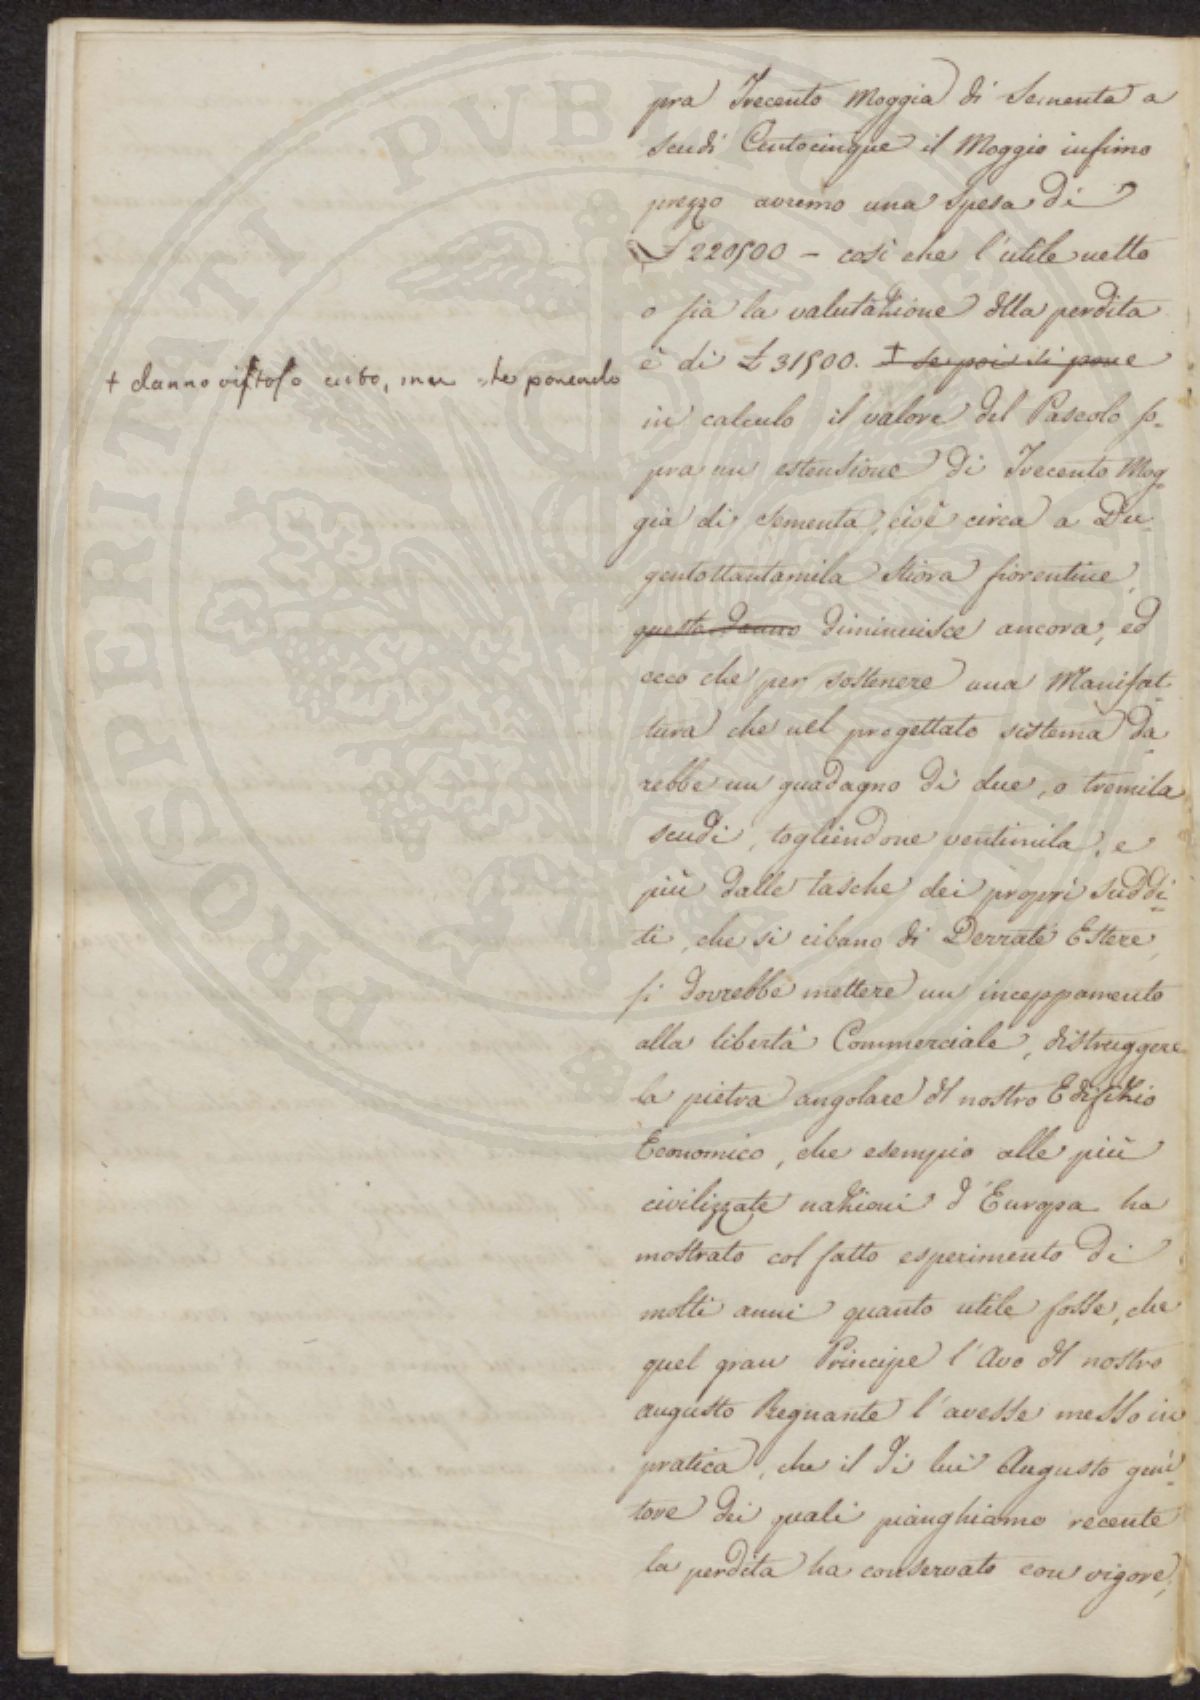 pra Trecento Moggia di Sementa a
scudi Centocinque il Moggio infimo
prezzo avremo una spesa di
£ 220500 – così che l'utile netto
o sia la valutazione dlla perdita
è di £ 31500. + se poi si pone
+ danno vistoso certo, ma che ponendo
in calculo il valore del Pascolo so-
pra un estensione di Trecento Mog-
gia di sementa, cioè circa a Du-
gentottantamila Stiora fiorentine,
questo danno diminuisce ancora, ed
ecco che per sostenere una Manifat-
tura che nel progettato sistema da-
rebbe un guadagno di due, o tremila
scudi, togliendone ventimila, e
più dalle tasche dei propri suddi-
ti, che si cibano di Derrate Estere,
si dovrebbe mettere un inceppamento
alla libertà Commerciale, distruggere
la pietra angolare dl nostro Edifizio
Economico, che esempio alle più
civilizzate nazioni d'Europa ha
mostrato col fatto esperimento di
molti anni quanto utile fosse, che
quel gran Principe l'Avo dl nostro
augusto Regnante l'avesse messo in
pratica, che il di lui Augusto geni-
tore dei quali pianghiamo recente
la perdita ha conservato con vigore,
PROSPERITATI PVBLICAE